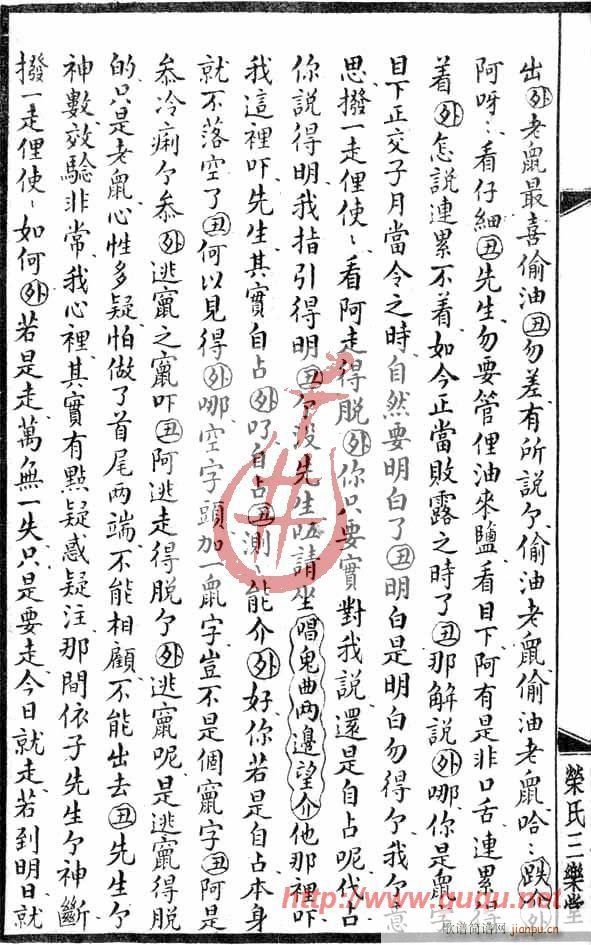 出外老鼠最喜偷油丑勿差有所説个偷油老鼠偷油老鼠哈〻跌介外
阿呀〻看仔細丑先生勿要管俚油來鹽看目下阿有是非口舌連累得
着外怎説連累不着如今正當敗露之時了丑那解説外哪你是鼠字
目下正交子月當令之時自然要明白了丑明白是明白勿得个我个意
思撥一走俚使〻看阿走得脱外你只要實對我説還是自占呢代占
你説得明我指引得明丑个没先生請坐唱鬼曲兩邊望介他那裡吓
我這裡吓先生其實自占外叮自占丑測〻能介外好你若是自占本身
就不落空了丑何以見得外哪空字頭加一鼠字豈不是個竄字丑阿是
叅冷痢个叅外逃竄之竄吓丑阿逃走得脱个外逃竄呢是逃竄得脱
的只是老鼠心性多疑怕做了首尾兩端不能相顧不能出去丑先生个
神數效驗非常我心裡其實有點疑惑疑注那間依子先生个神斷
撥一走俚使〻如何外若是走萬無一失只是要走今日就走若到明日就
榮氏三樂堂
http://www.ququ.net
歌谱简谱网
jianpu.cn